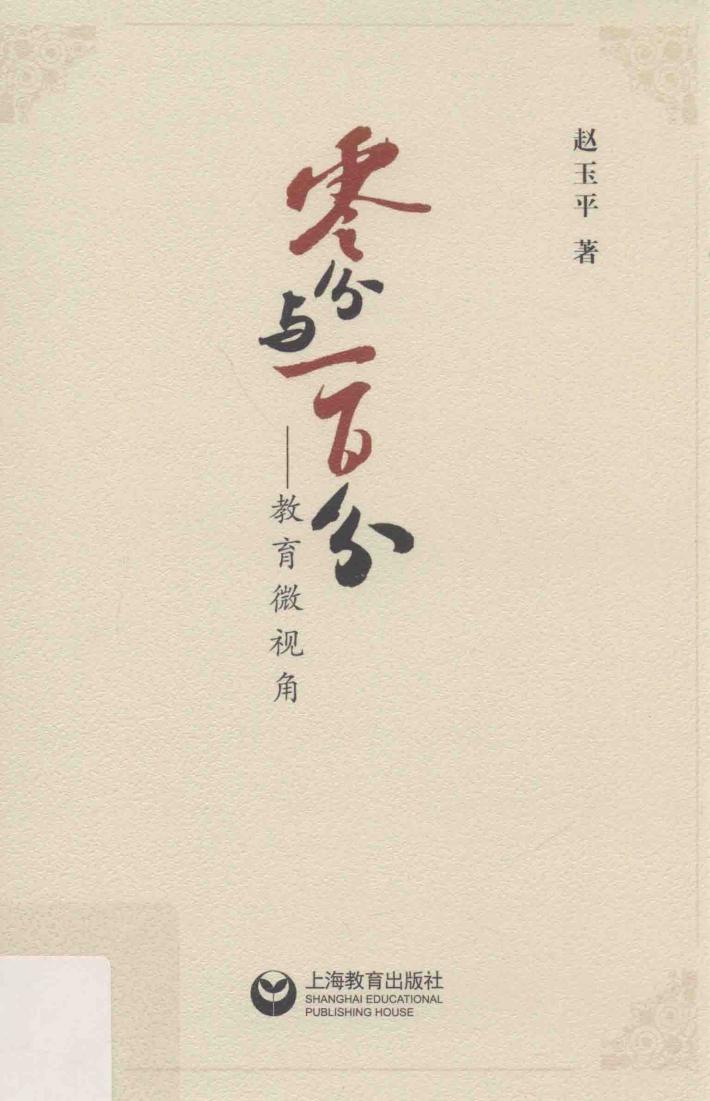 赵玉平 著
零分与一百分
——教育微视角
上海教育出版社
SHANGHAI EDUCATIONAL
PUBLISHING HOUSE